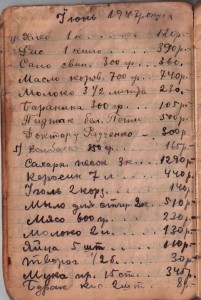 Июнь 1947 года
Хлеб 1 к 120р.
Рис 1 кило 390р.
Сало свин. 300 гр. 360.
Масло коров. 700 гр. 740р.
Молоко 3 1/2 литра 230.
Баранина 300 гр. 105р.
Пиджак бел. 500р.
Доктору 300р.
5) Колбаса 250 гр. 165р.
Сахарн. песок 3к. 1290р.
Керосин 7 л 440р.
Уголь 2 корз. 140р.
Мыло для стир. 3к. 510р.
Мясо 600 гр. 230р.
Молоко 2 л. 130р.
Яйца 5 шт 110р.
Творог 1/2б. 30р.
Мука пр. 15 ст. 345р.
2 шт. 80